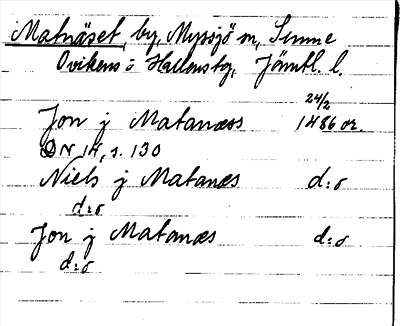 Matnäset, by, Myssjö sn, Sunne
Ovikens o Hallens tg, Jämtl. l.
24/2
Jon j Matanæs 1486 or.
DN 14, s. 130
Niels j Matanæs d:o
d:o
Jon j Matanæs d:o
d:o